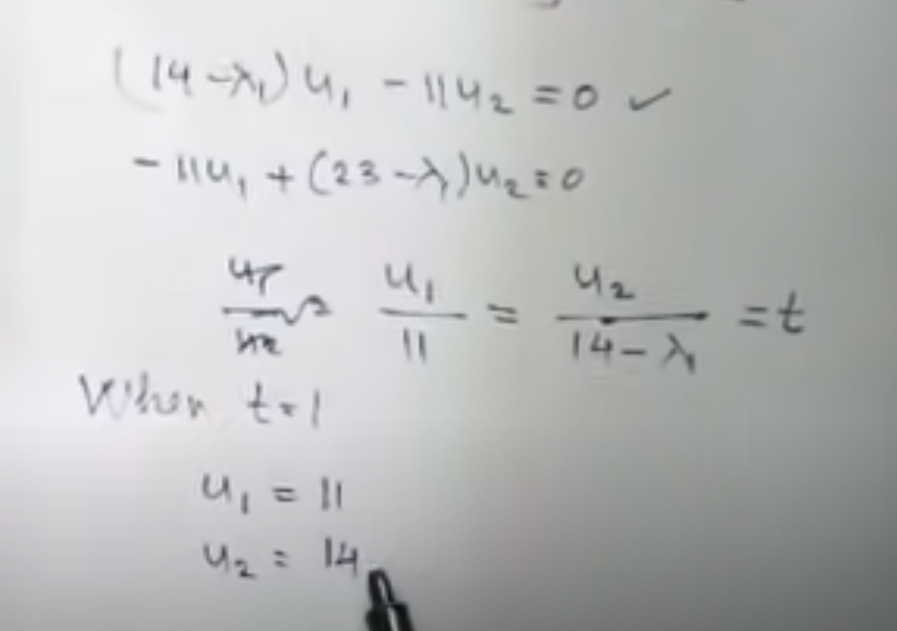 (14-λ₁)u₁ - 11u₂ = 0 ✓
-11u₁ + (23-λ₁)u₂ = 0
u₁/11 = u₂/(14-λ₁) = t
When t=1
u₁ = 11
u₂ = 14